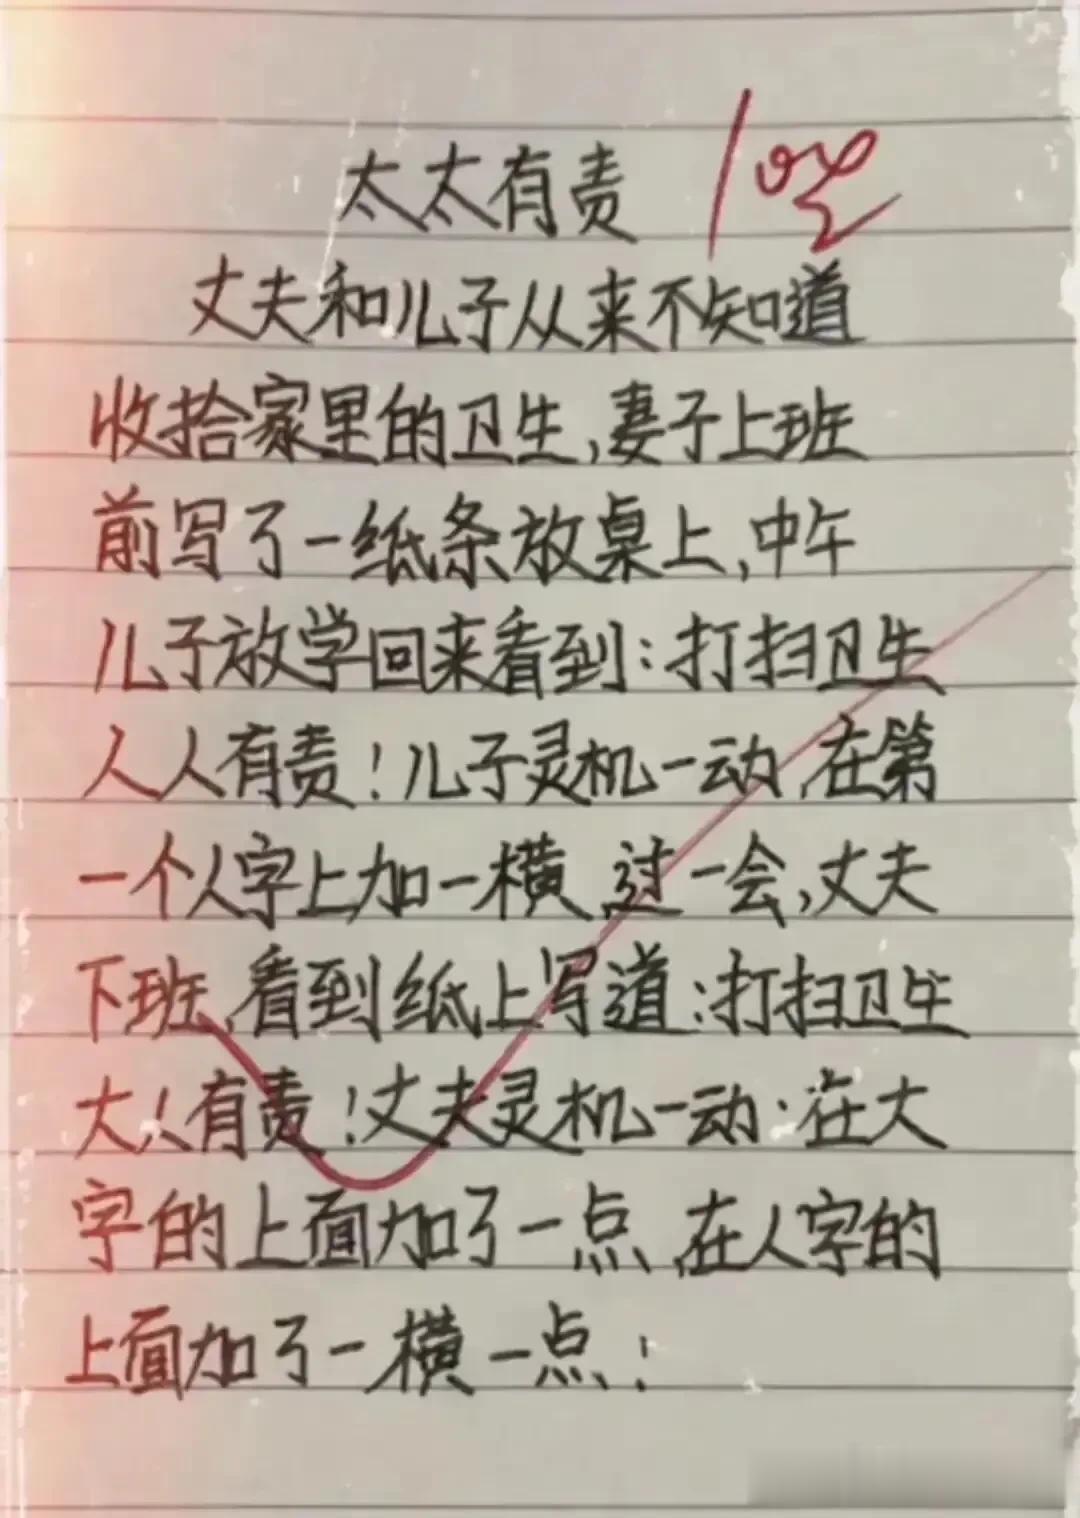 太太有责
丈夫和儿子从来不知道
收拾家里的卫生,妻子上班
前写了一纸条放桌上,中午
儿子放学回来看到:打扫卫生
人人有责!儿子灵机一动,在第
一个人字上加一横,过一会,丈夫
下班,看到纸上写道:打扫卫生
大人有责!丈夫灵机一动:在大
字的上面加了一点,在人字的
上面加了一横一点!